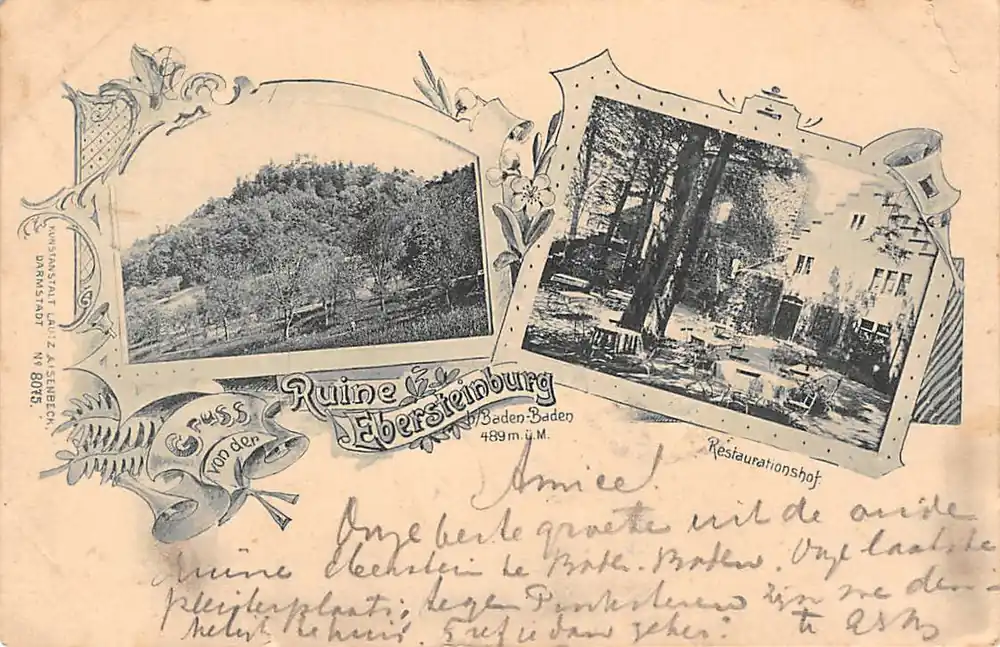 KUNSTANSTALT LAUTZ & ISENBECK,
DARMSTADT Nº 8075.
Gruss
von der
Ruine
Ebersteinburg
b/Baden-Baden
489 m. ü. M.
Restaurationshof.
Amice!
Onze beste groeten uit de oude
ruine Eberstein te Baden-Baden. Onze laatste
pleisterplaats; tegen Pinksteren zijn we
te huis.